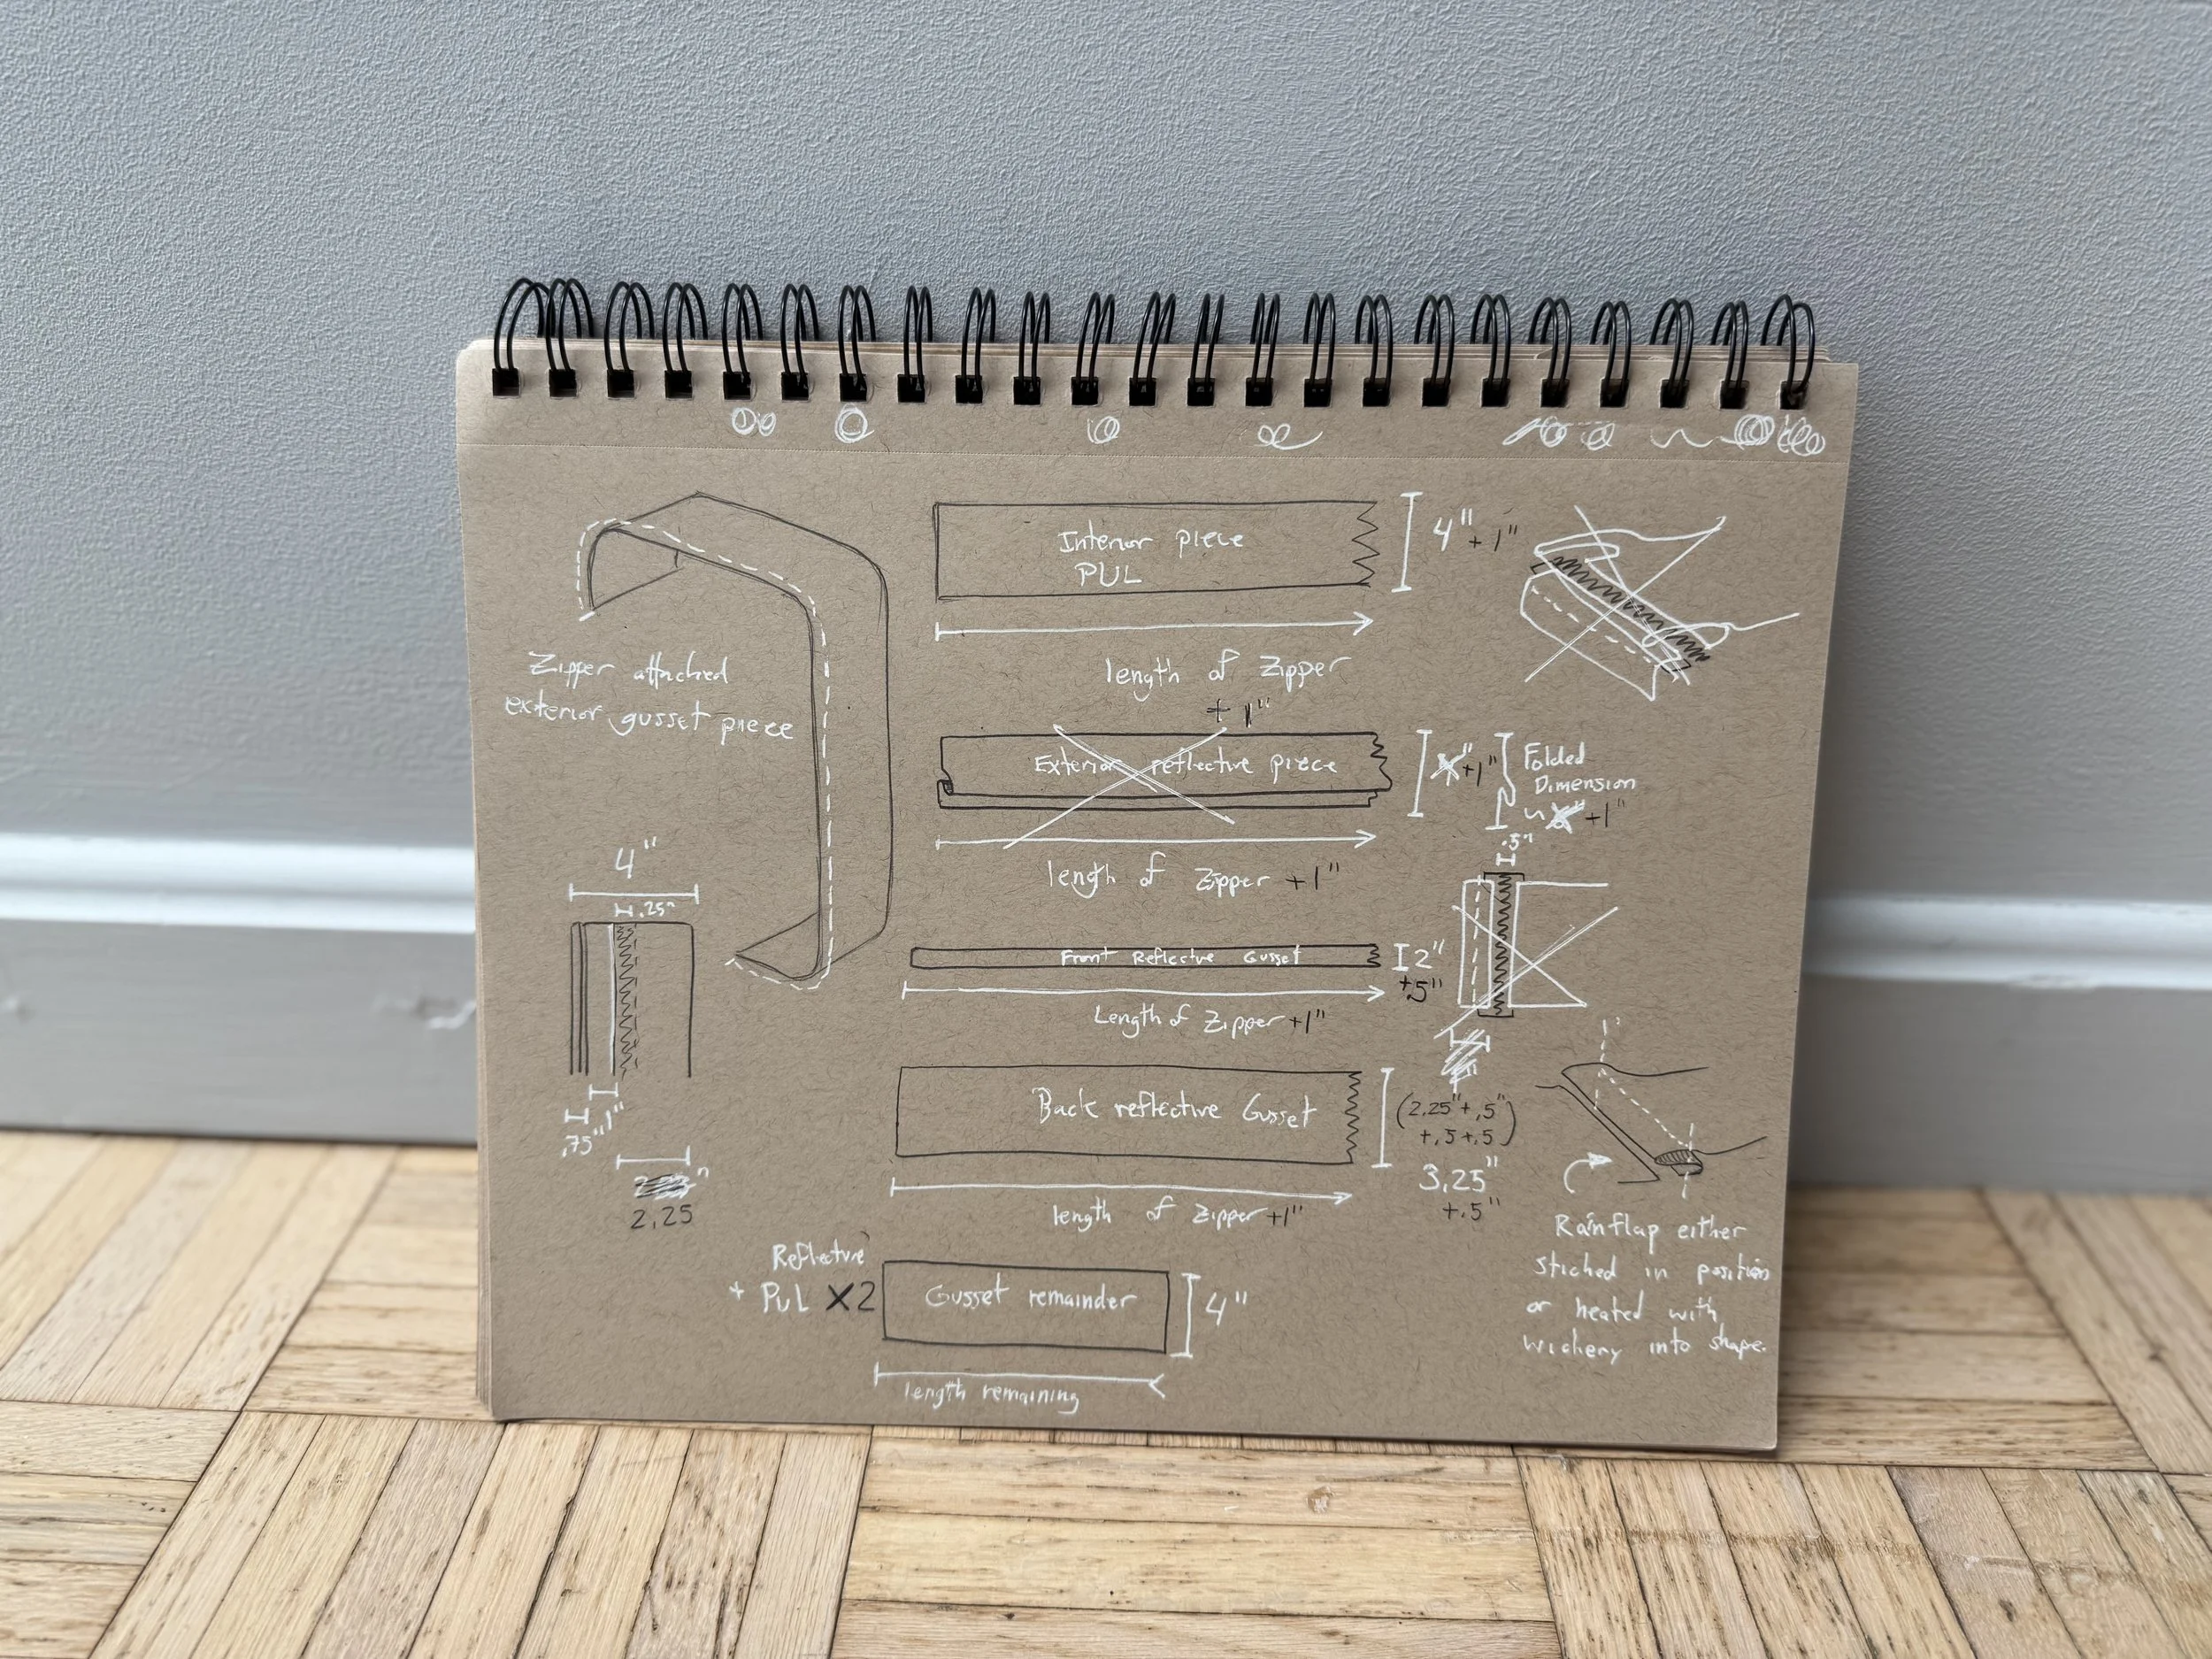 Zipper attached
exterior gusset piece
4"
.25"
.75"
1"
2.25
Interior piece
PUL
4" + 1"
length of Zipper
+ 1"
Exterior reflective piece
+1"
Folded
Dimension
+1"
length of Zipper +1"
.5"
Front Reflective Gusset
2"
+.5"
Length of Zipper +1"
Back reflective Gusset
(2.25" + .5"
+.5 +.5)
3.25"
+.5"
length of Zipper +1"
Reflective
+ PUL X2
Gusset remainder
4"
length remaining
1"
Rainflap either
stiched in position
or heated with
wichery into shape.